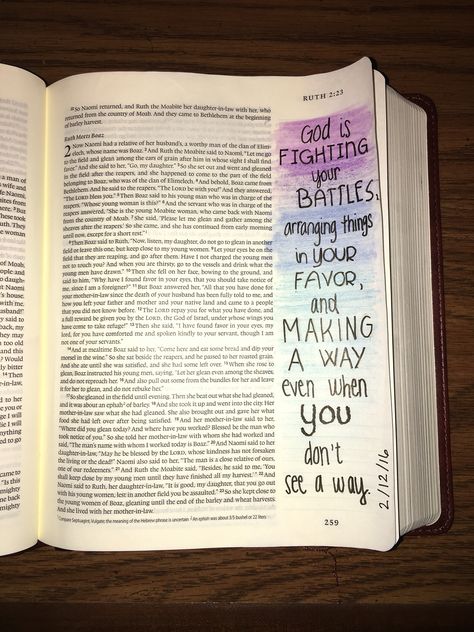 RUTH 2:23
22 So Naomi returned, and Ruth the Moabite her daughter-in-law with her, who
returned from the country of Moab. And they came to Bethlehem at the beginning
of barley harvest.
Ruth Meets Boaz
2 Now Naomi had a relative of her husband's, a worthy man of the clan of Elim-
elech, whose name was Boaz. 2 And Ruth the Moabite said to Naomi, "Let me go
to the field and glean among the ears of grain after him in whose sight I shall find
favor." And she said to her, "Go, my daughter." 3 So she set out and went and gleaned
in the field after the reapers, and she happened to come to the part of the field
belonging to Boaz, who was of the clan of Elimelech. 4 And behold, Boaz came from
Bethlehem. And he said to the reapers, "The LORD be with you!" And they answered,
"The LORD bless you." 5 Then Boaz said to his young man who was in charge of the
reapers, "Whose young woman is this?" 6 And the servant who was in charge of the
reapers answered, "She is the young Moabite woman, who came back with Naomi
from the country of Moab. 7 She said, 'Please let me glean and gather among the
sheaves after the reapers.' So she came, and she has continued from early morning
until now, except for a short rest."
8 Then Boaz said to Ruth, "Now, listen, my daughter, do not go to glean in another
field or leave this one, but keep close to my young women. 9 Let your eyes be on the
field that they are reaping, and go after them. Have I not charged the young men
not to touch you? And when you are thirsty, go to the vessels and drink what the
young men have drawn." 10 Then she fell on her face, bowing to the ground, and
said to him, "Why have I found favor in your eyes, that you should take notice of
me, since I am a foreigner?" 11 But Boaz answered her, "All that you have done for
your mother-in-law since the death of your husband has been fully told to me, and
how you left your father and mother and your native land and came to a people
that you did not know before. 12 The LORD repay you for what you have done, and
a full reward be given you by the LORD, the God of Israel, under whose wings you
have come to take refuge!" 13 Then she said, "I have found favor in your eyes, my
lord, for you have comforted me and spoken kindly to your servant, though I am
not one of your servants."
14 And at mealtime Boaz said to her, "Come here and eat some bread and dip your
morsel in the wine." So she sat beside the reapers, and he passed to her roasted grain.
And she ate until she was satisfied, and she had some left over. 15 When she rose to
glean, Boaz instructed his young men, saying, "Let her glean even among the sheaves,
and do not reproach her. 16 And also pull out some from the bundles for her and leave
it for her to glean, and do not rebuke her."
17 So she gleaned in the field until evening. Then she beat out what she had gleaned,
and it was about an ephah of barley. 18 And she took it up and went into the city. Her
mother-in-law saw what she had gleaned. She also brought out and gave her what
food she had left over after being satisfied. 19 And her mother-in-law said to her,
"Where did you glean today? And where have you worked? Blessed be the man who
took notice of you." So she told her mother-in-law with whom she had worked and
said, "The man's name with whom I worked today is Boaz." 20 And Naomi said to her
daughter-in-law, "May he be blessed by the LORD, whose kindness has not forsaken
the living or the dead!" Naomi also said to her, "The man is a close relative of ours,
one of our redeemers." 21 And Ruth the Moabite said, "Besides, he said to me, 'You
shall keep close by my young men until they have finished all my harvest.'" 22 And
Naomi said to Ruth, her daughter-in-law, "It is good, my daughter, that you go out
with his young women, lest in another field you be assaulted." 23 So she kept close to
the young women of Boaz, gleaning until the end of the barley and wheat harvests.
And she lived with her mother-in-law.
1 Compare Septuagint, Vulgate; the meaning of the Hebrew phrase is uncertain 2 An ephah was about 3/5 bushel or 22 liters
259
God is
FIGHTING
your
BATTLES,
arranging things
in YOUR
FAVOR,
and
MAKING
A WAY
even when
YOU
don't
see a way.
2/12/16